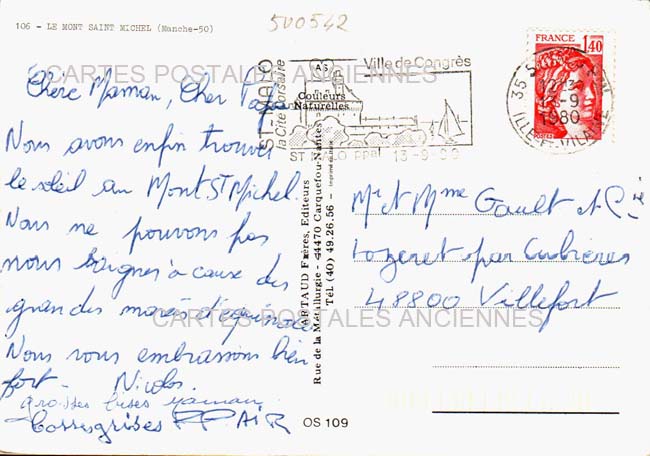 106 - LE MONT SAINT MICHEL (Manche-50)
500542
CARTES POSTALES ANCIENNES
Chère Maman, Cher Papa
Nous avons enfin trouvé
le soleil au Mont St Michel.
Nous ne pouvons pas
nous baigner à cause des
grandes marées d'équinoxe
Nous vous embrassons bien
fort - Nicolas
grosses bises maman
ST-MALO
la Cité Corsaire
Ville de Congrès
Couleurs
Naturelles
ST MALO PPAL 13-9-80
FRANCE
1,40
35
13-9
1980
ILLE-ET-VILAINE
ARTAUD Frères, Editeurs
Rue de la Métallurgie - 44470 Carquefou-Nantes
Tél. (40) 49.26.56 - Imprimé
OS 109
Mr et Mme Gault et Cie
Lozeret par Cubières
48800 Villefort
CARTES POSTALES ANCIENNES